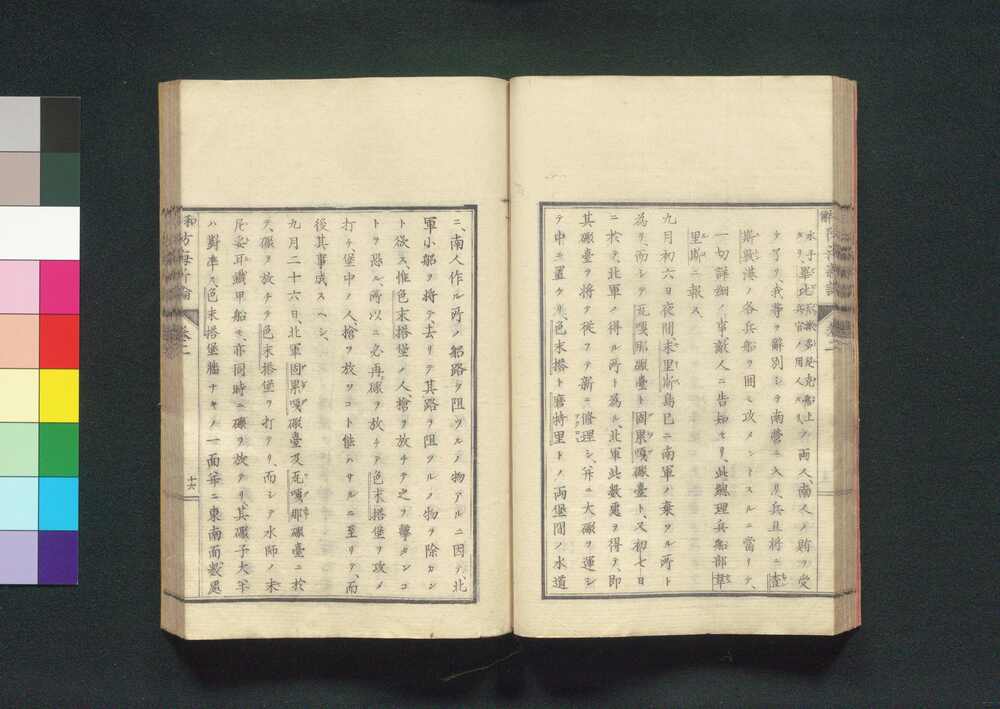 永子ヨリ、畢此尼懶多是兵官ノ用人、克船上ノ両人、南人ノ賄ヲ受
ケ了リ、我等ヲ辭別シテ南營ニ入リ、兵且将ニ査
斯敦港ノ各兵船ヲ囲ミ攻メントスルニ當リテ、
一句詳細ノ事、敵人ニ告知セリ、此総理兵船部韋
里斯ニ報ス、
九月初六日夜間、末里斯島已ニ南軍ノ棄ツル所ト
為リ、而シテ瓦嘎那礟臺ト固累嘎礟臺ト、又初七日
ニ於テ、北軍ノ得ル所ト為ル、北軍此数処ヲ得テ、即
其礟臺ヲ将テ従フテ新ニ修理シ、并ニ大礟ヲ運シ
テ中ニ置ケリ、色末搭ト磨特里トノ両堡間ノ水道
ニ、南人作ル所ノ船路ヲ阻ツルノ物アルニ因テ、北
軍小船ヲ将テ去リテ其路ヲ阻ツルノ物ヲ除カン
ト欲ス、惟色末搭堡ノ人、槍ヲ放チテ之ヲ撃タンコ
トヲ恐ル、所以ニ必再礟ヲ放チテ色末搭堡ヲ攻メ
打チ、堡中ノ人、槍ヲ放ツコト能ハサルニ至リテ、而
後其事成スヘシ、
九月二十六日、北軍固累嘎礟臺及瓦嘎那礟臺ニ於
テ、礟ヲ放チテ色末搭堡ヲ打テリ、而シテ水師ノ未
尼妥耳鐵甲船モ、亦同時ニ礟ヲ放テリ、其礟子大半
ハ對準ス色末搭堡牆ナキノ一面并ニ東南面数處
卷二
十六